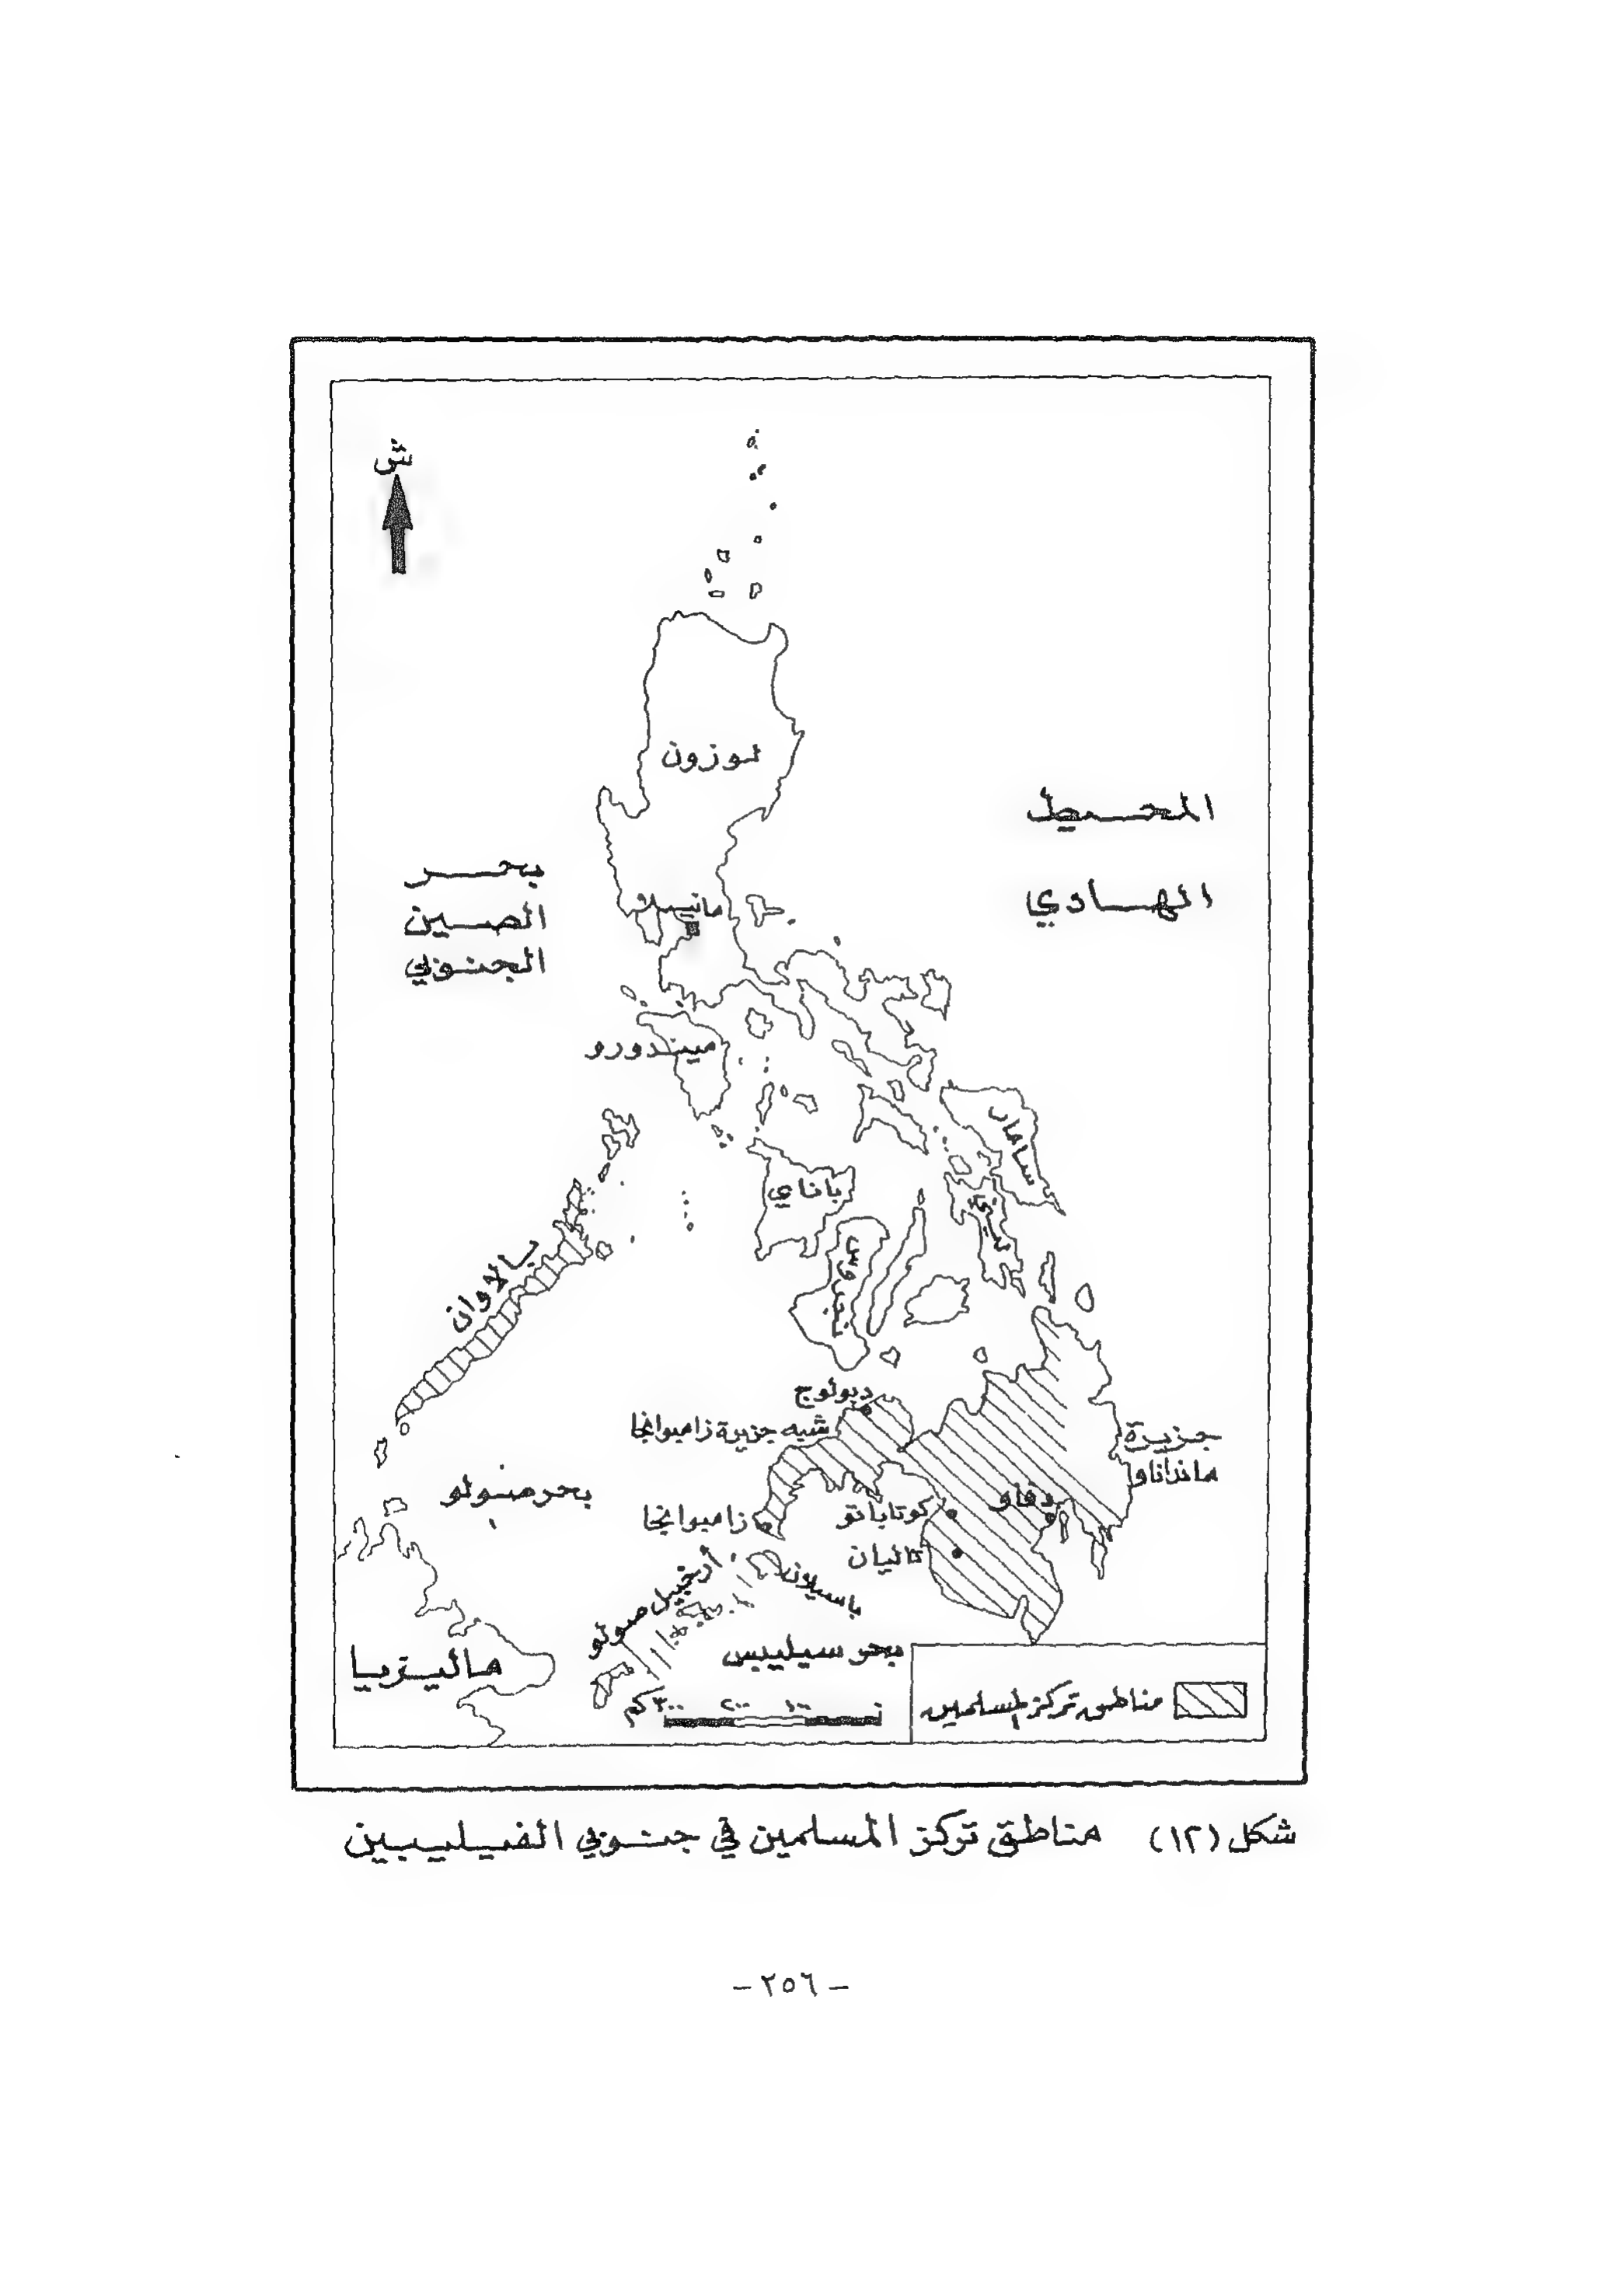 ش
لوزون
المحيط
الهادي
بحر
الصين
الجنوبي
مانيلا
ميندورو
سامار
باناي
بالاوان
ديولوج
شبه جزيرة زامبوانجا
جزيرة
مانداناو
بحر صولو
زامبوانجا
كوتاباتو
دفاو
تاليان
أرخبيل صولو
باسيلان
بحر سيليبس
ماليزيا
٣٠٠ كم ٢٠٠ ١٠٠ ٠
مناطق تركز المسلمين
شكل (١٢) مناطق تركز المسلمين في جنوبي الفيليبين
- ٢٥٦ -